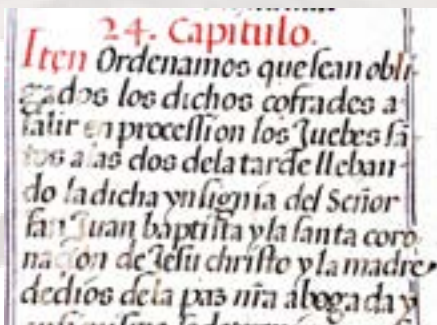 24. Capitulo.
Iten Ordenamos que sean obli-
gados los dichos cofrades a
salir en procession los Juebes sã
tos a las dos dela tarde lleban-
do la dicha ynsignia del Señor
san Juan baptista y la santa coro
nacion de Jesu christo y la madre
dedios dela pas nr̃a abogada y